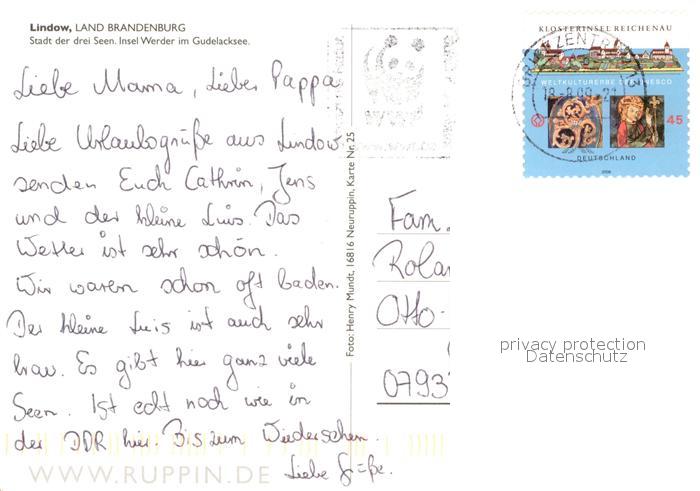 Lindow, LAND BRANDENBURG
Stadt der drei Seen. Insel Werder im Gudelacksee.
Liebe Mama, Lieber Pappa
Liebe Urlaubsgrüße aus Lindow
senden Euch Cathrin, Jens
und der kleine Luis. Das
Wetter ist sehr schön.
Wir waren schon oft baden.
Der kleine Luis ist auch sehr
brav. Es gibt hier ganz viele
Seen. Ist echt noch wie in
der DDR hier. Bis zum Wiedersehen.
Liebe Grüße.
WWW.RUPPIN.DE
Foto: Henry Mundt, 16816 Neuruppin, Karte Nr. 25
Fam.
Rola
Otto-
0793
KLOSTERINSEL REICHENAU
WELTKULTURERBE DER UNESCO
45
DEUTSCHLAND
2008
privacy protection
Datenschutz